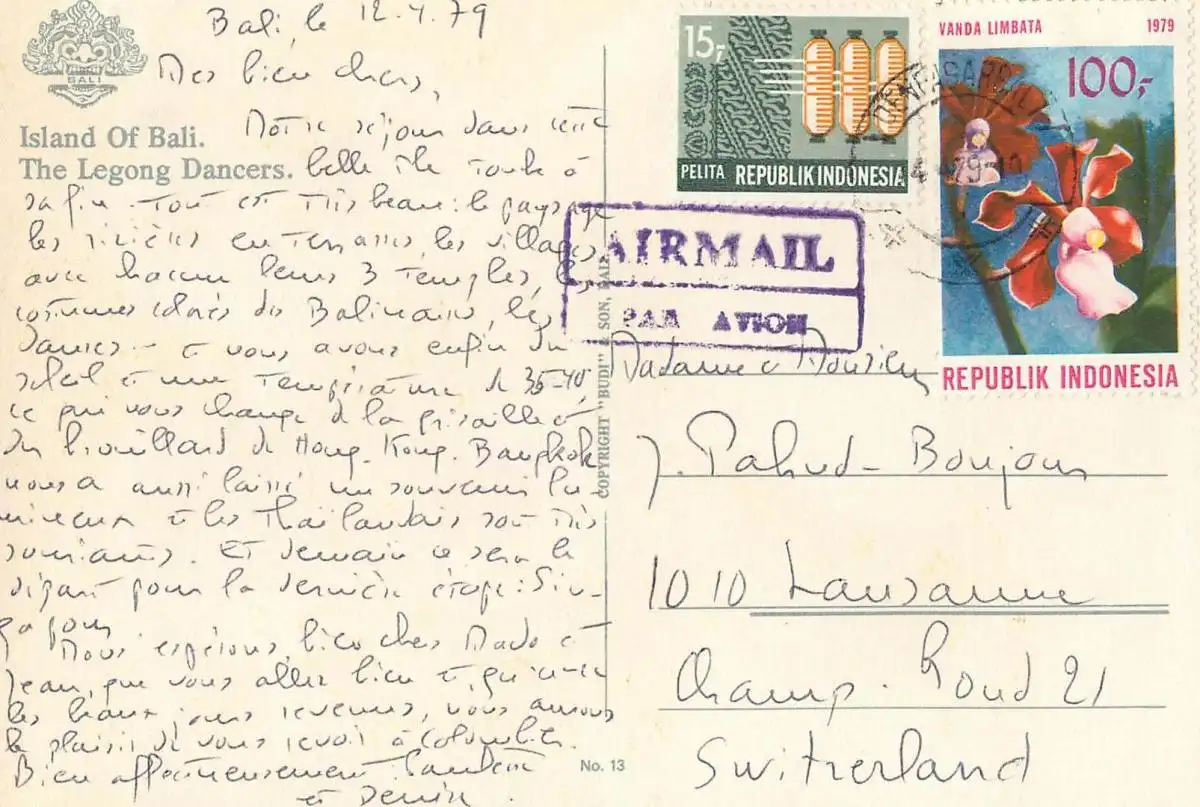 Bali, le 12.4.79
BALI
Mes bien chers,
Island Of Bali.
The Legong Dancers.
Notre séjour dans cette
belle île touche à
sa fin. Tout est très beau : le paysage
les rizières en terrasses, les villages,
avec chacun leurs 3 temples, les
costumes colorés des Balinais, les
danses — et nous avons enfin du
soleil et une température de 35-40,
ce qui nous change de la grisaille et
du brouillard de Hong-Kong. Bangkok
nous a aussi laissé un souvenir lu-
mineux et les Thaïlandais sont très
souriants. Et demain ce sera le
départ pour la dernière étape : Sin-
gapour
Nous espérons, bien chers Mado et
Jean, que vous allez bien et, qu'avec
les beaux jours revenus, nous aurons
le plaisir de vous revoir à Colombier.
Bien affectueusement
et Denise.
COPYRIGHT "BUDI" & SON, BALI
No. 13
15,-
PELITA REPUBLIK INDONESIA
VANDA LIMBATA 1979
100,-
REPUBLIK INDONESIA
DENPASAR
AIRMAIL
PAR AVION
Madame et Monsieur
J. Pahud-Bonjour
1010 Lausanne
Champ-Rond 21
Switzerland